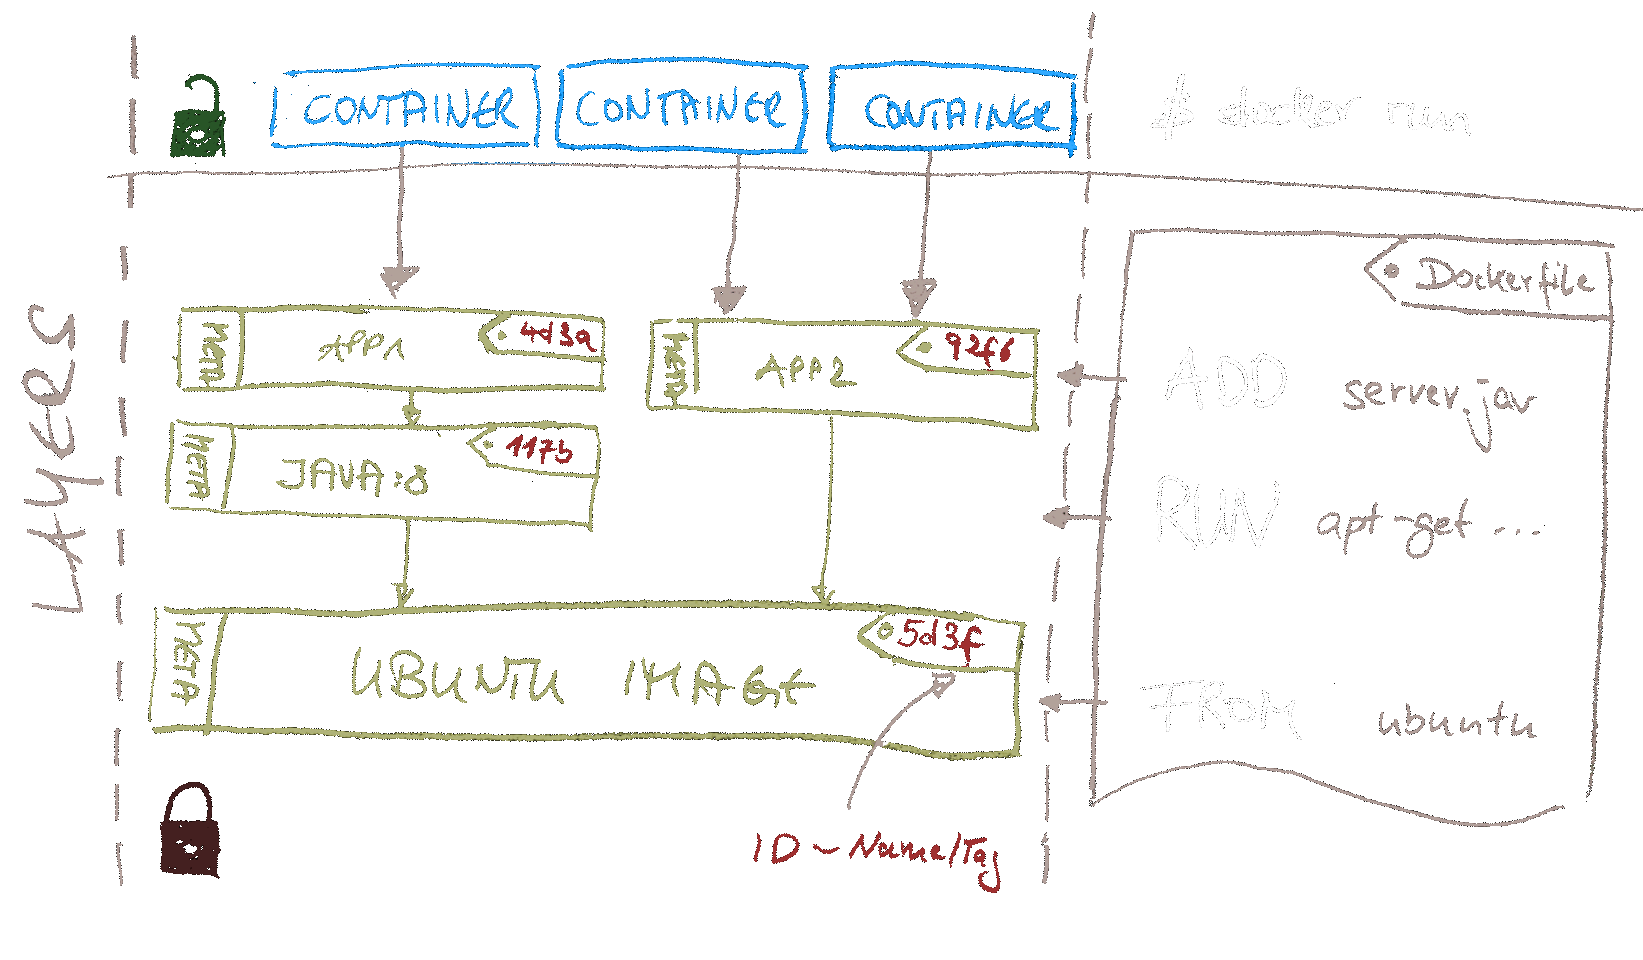 CONTAINER CONTAINER CONTAINER
$ docker run
LAYERS
META APP1 4d3a
META APP2 92f6
META JAVA:8 117b
META UBUNTU IMAGE 5d3f
ID - Name/Tag
Dockerfile
ADD server.jar
RUN apt-get ...
FROM ubuntu